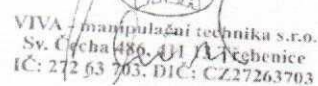 VIVA - manipulační technika s.r.o.
Sv. Čecha 486, 411 13 Třebenice
IČ: 272 63 703, DIČ: CZ27263703